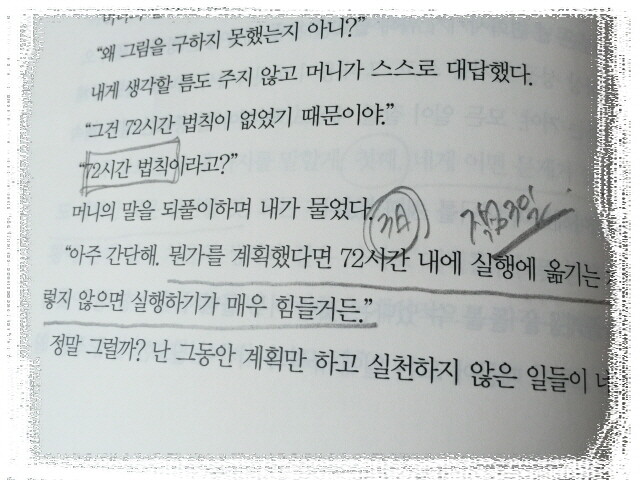 "왜 그림을 구하지 못했는지 아니?"
내게 생각할 틈도 주지 않고 머니가 스스로 대답했다.
"그건 72시간 법칙이 없었기 때문이야."
"72시간 법칙이라고?"
머니의 말을 되풀이하며 내가 물었다.
"아주 간단해. 뭔가를 계획했다면 72시간 내에 실행에 옮기는
렇지 않으면 실행하기가 매우 힘들거든."
정말 그럴까? 난 그동안 계획만 하고 실천하지 않은 일들이 너